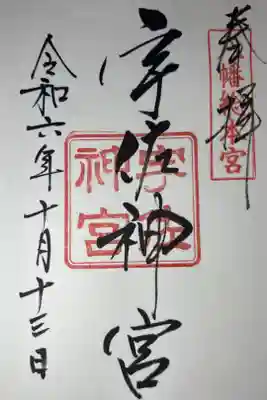 奉拝
八幡総本宮
宇佐神宮
宇佐神宮
令和六年十月十三日